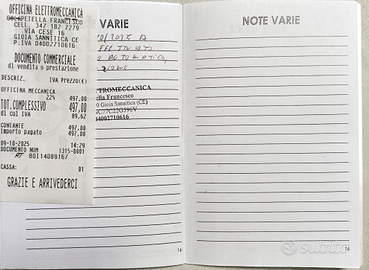 OFFICINA ELETTROMECCANICA
DELAPETELLA FRANCESCO
CELL. 347 182 7279
VIA CESE 16
GIOIA SANNITICA CE
P.IVA 04002710616
DOCUMENTO COMMERCIALE
di vendita o prestazione
DESCRIZ. IVA Prezzo(€)
OFFICINA MECCANICA
22% 497,00
TOT.COMPLESSIVO 497,00
di cui IVA 89,62
CONTANTE 497,00
Importo pagato 497,00
09-10-2025 14:29
DOCUMENTO NUM 1315-0001
RT 80114089167
CASSA: 01
GRAZIE E ARRIVEDERCI
VARIE
TROMECCANICA
lla Francesco
0 Gioia Sannitica (CE)
04002710616
16
NOTE VARIE
subito